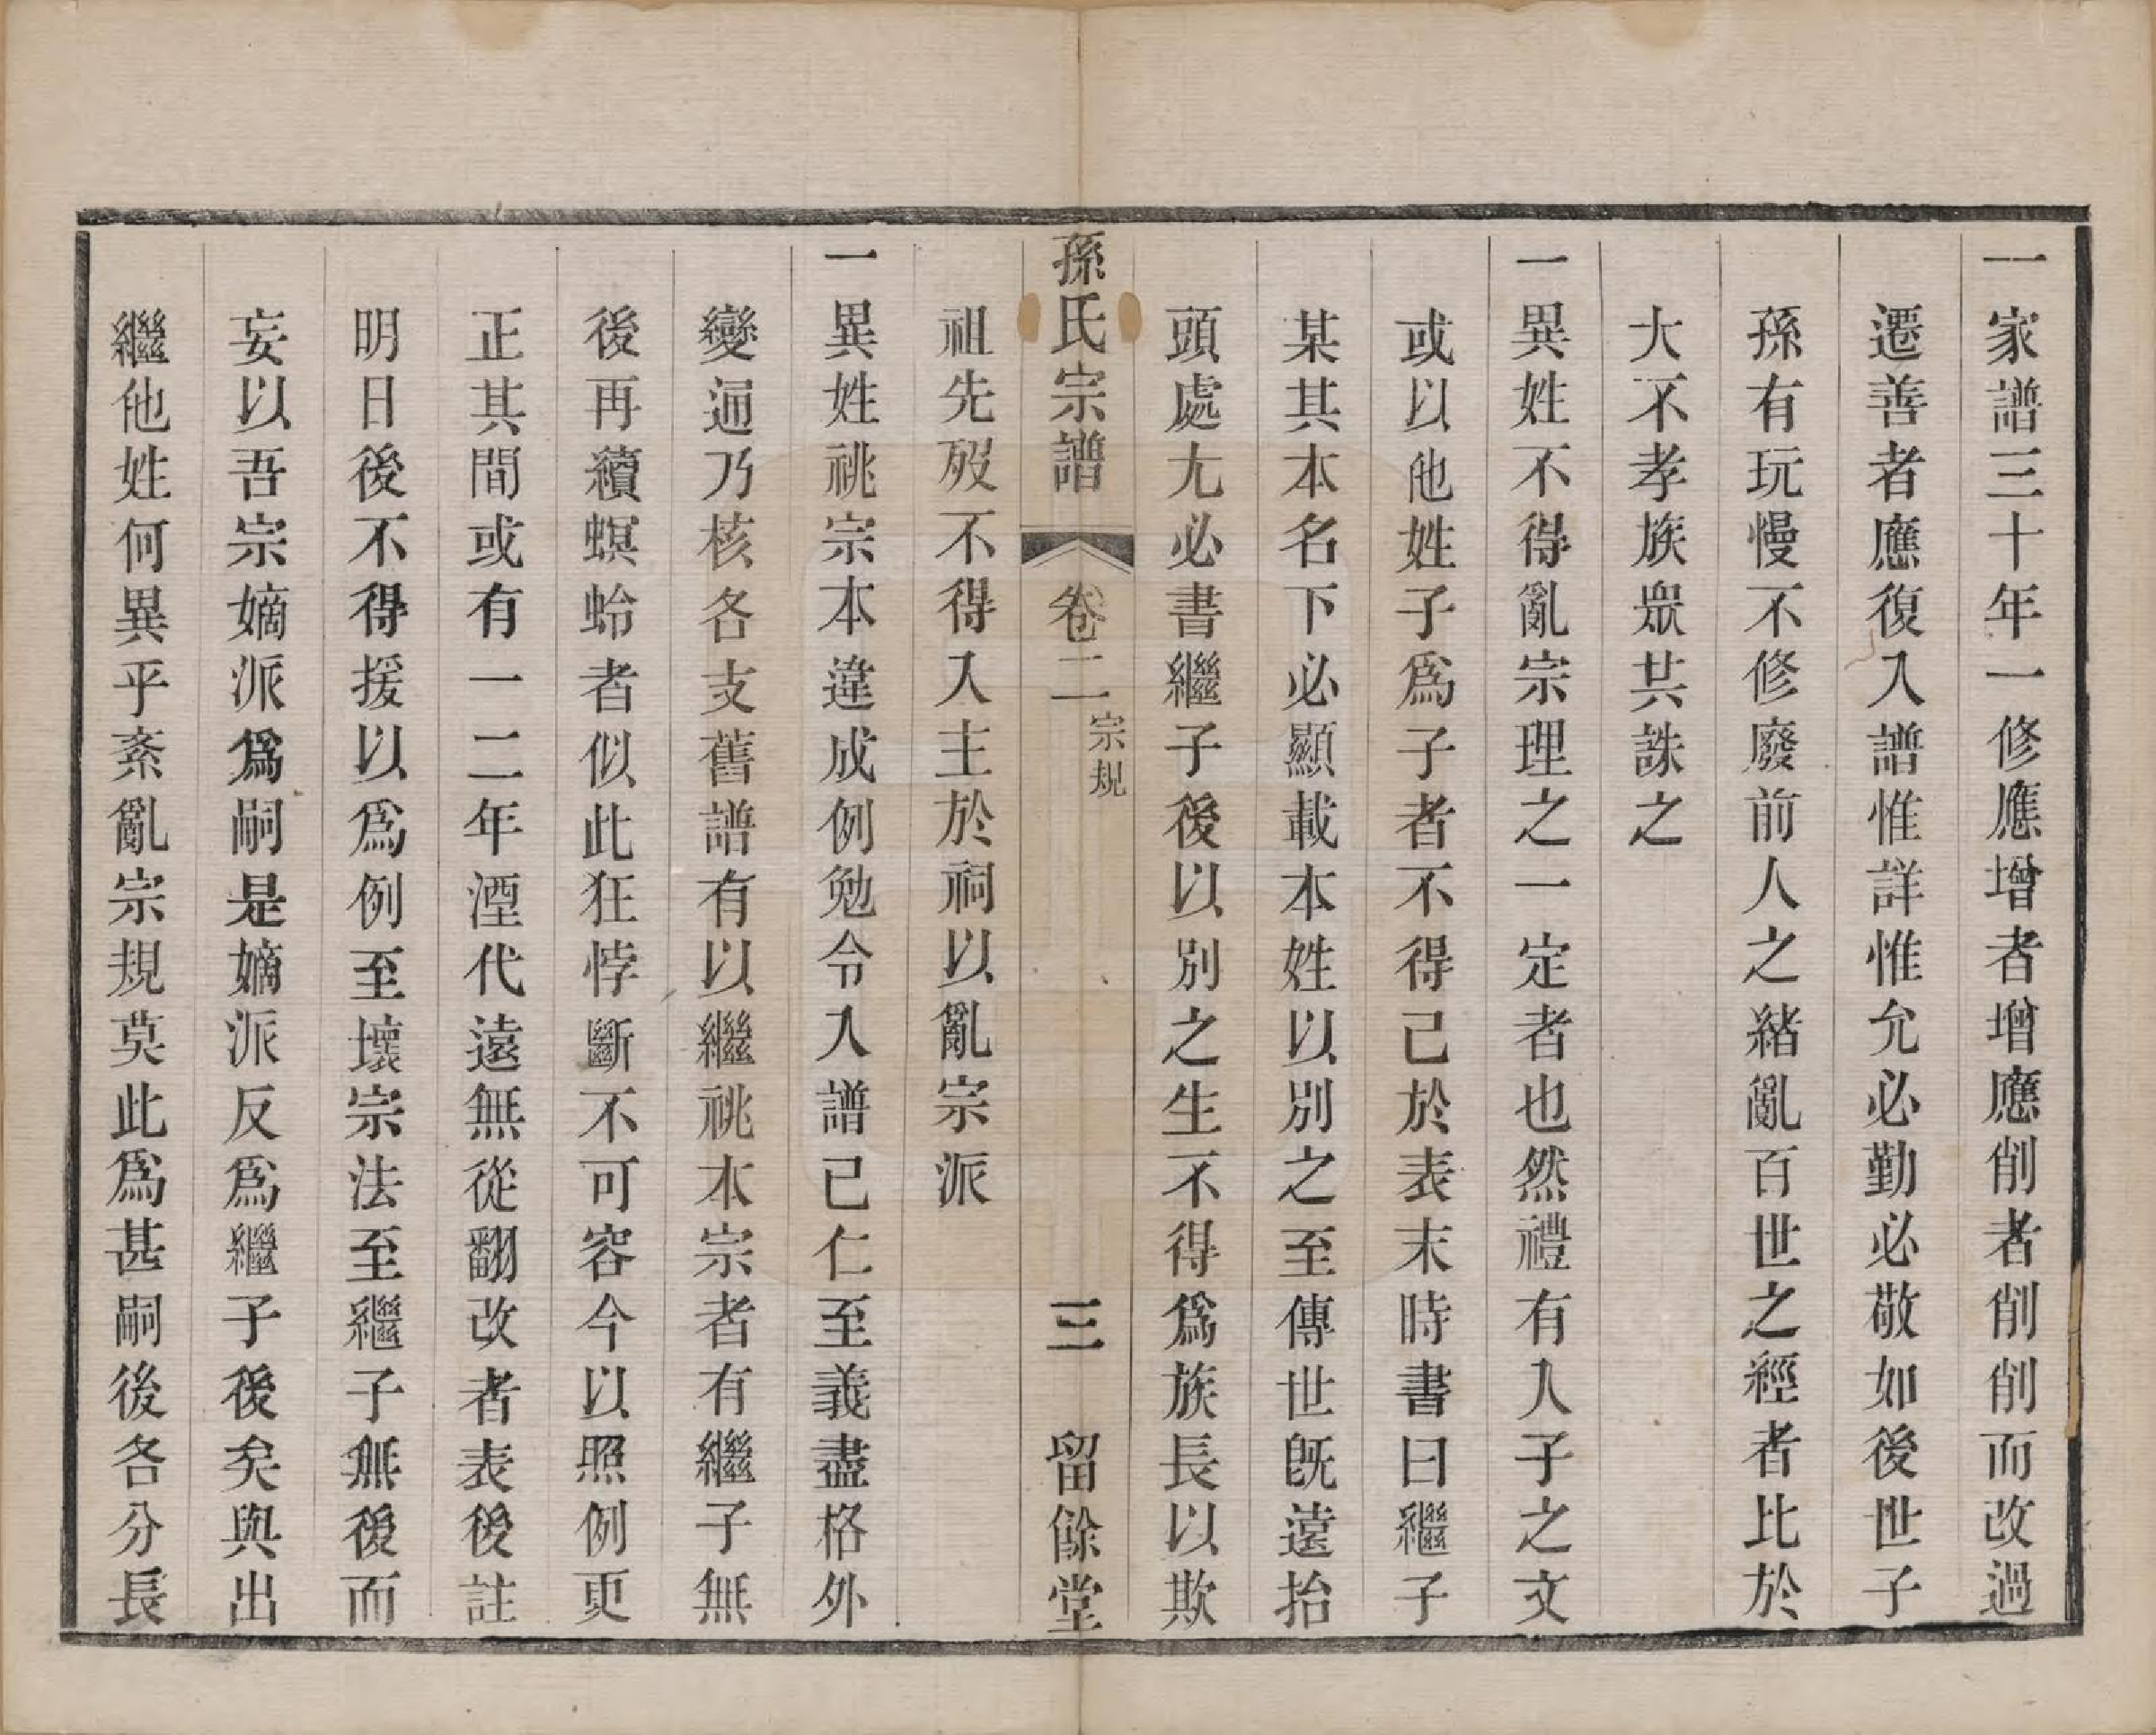 一家譜三十年一修應增者增應削者削削而改過
遷善者應復入譜惟詳惟允必勤必敬如後世子
孫有玩慢不修廢前人之緒亂百世之經者比於
大不孝族眾共誅之
一異姓不得亂宗理之一定者也然禮有人子之文
或以他姓子爲子者不得己於表末時書曰繼子
某其本名下必顯載本姓以別之至傳世既遠抬
頭處尢必書繼子後以別之生不得爲族長以欺
祖先歿不得入主於祠以亂宗派
孫氏宗譜 卷二 宗規 三 留餘堂
一異姓祧宗本違成例勉令入譜已仁至義盡格外
變通乃核各支舊譜有以繼祧本宗者有繼子無
後再續螟蛉者似此狂悖斷不可容今以照例更
正其間或有一二年湮代遠無從翻改者表後註
明日後不得援以爲例至壞宗法至繼子無後而
妄以吾宗嫡派爲嗣是嫡派反爲繼子後矣與出
繼他姓何異乎紊亂宗規莫此爲甚嗣後各分長